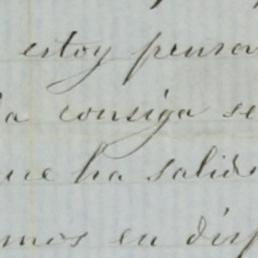 estoy pensa
la consiga se
que ha salid
mos en disp